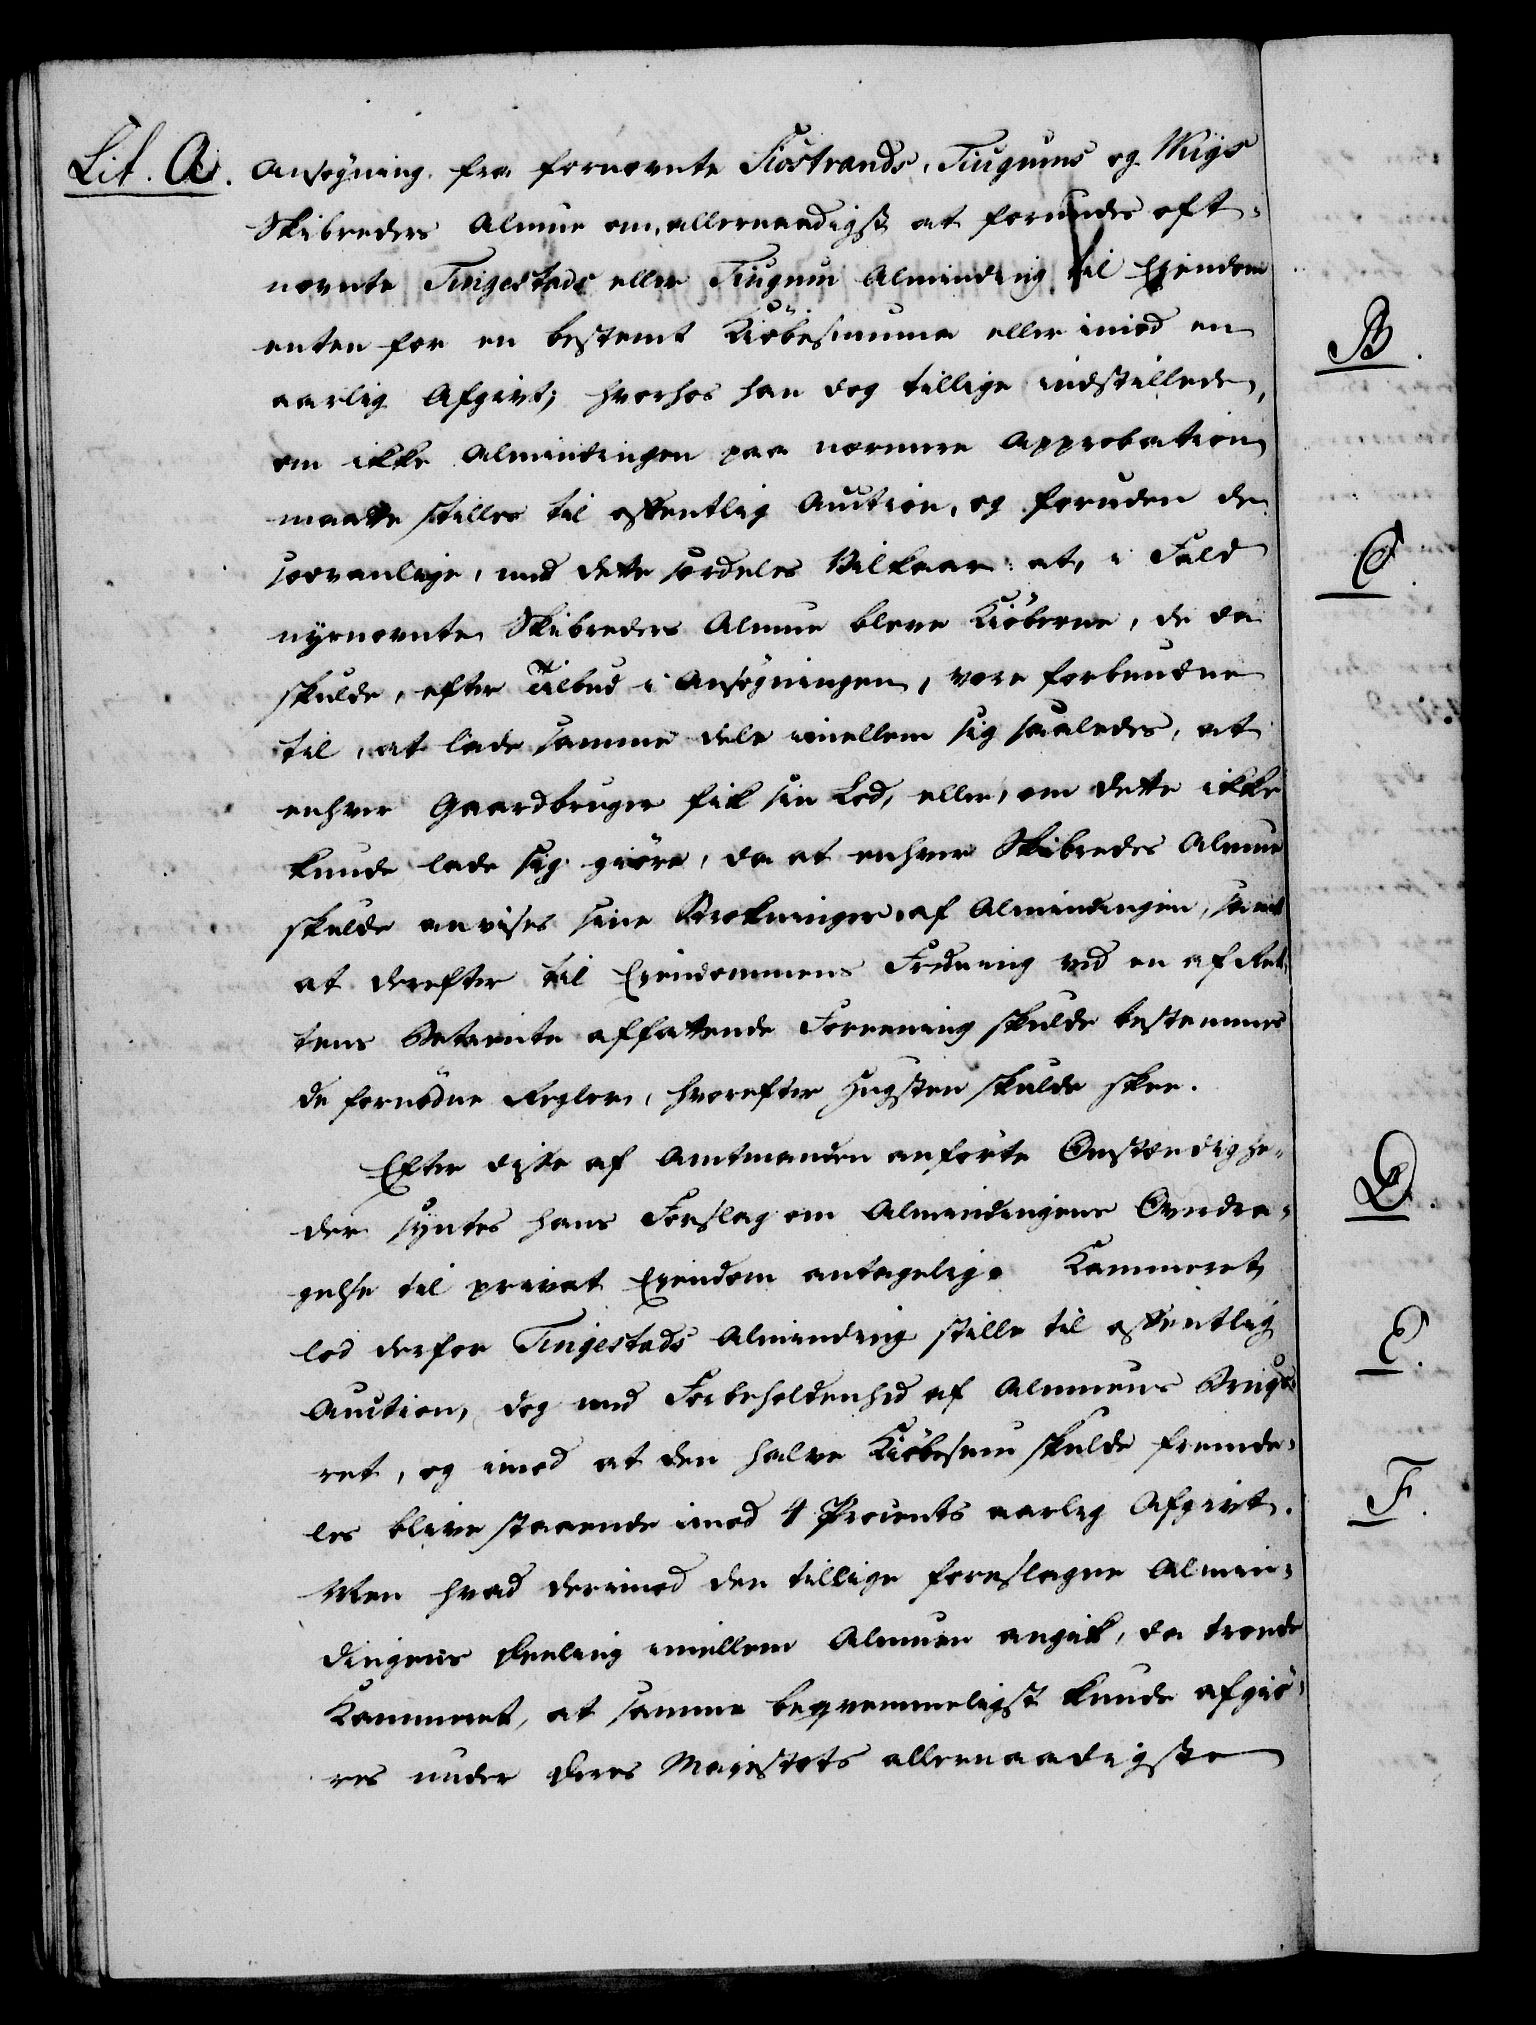 Lit. A. Ansøgning fra fornævnte Siostrands, Tiugums og Wiigs
Skibreders Almue om, allernaadigst at forundes oft-
nævnte Tingestads eller Tiugum Alminding til Ejendom
enten for en bestemt Kiöbesumma eller imod en
aarlig Afgivt; hvorhos han dog tillige indstillede,
om ikke Almindingen paa nærmere Approbation
maatte stilles til offentlig Auction, og foruden de
sædvanlige, med dette særdeles Vilkaar: at, i Fald
nysnævnte Skibreders Almue bleve Kiöberne, de da
skulde, efter Tilbud i Ansøgningen, være forbundne
til, at lade samme dele imellem sig saaledes, at
enhver Gaardbruger fik sin Lod, eller, om dette ikke
kunde lade sig giöre, da at enhver Skibredes Almue
skulde anvises sine Strækninger af Almindingen, samt
at derefter til Ejendommens Fredning ved en af Ret-
tens Betiente affattende Foreening skulde bestemmes
de fornödne Regler, hvorefter Hugsten skulde skee.
Efter disse af Amtmanden anførte Omstændighe-
der syntes hans Forslag om Almindingens Overdra-
gelse til privat Ejendom antagelig. Kammeret
lod derfor Tingestads Alminding stille til offentlig
Auction, dog med Forbeholdenhed af Almuens Brugs-
ret, og imod at den halve Kiöbesum skulde fremde-
les blive staaende imod 4 Procents aarlig Afgivt.
Men hvad derimod den tillige foreslagne Almin-
dingens Deeling imellem Almuen angik, da troede
Kammeret, at samme beqvemmeligst kunde afgiö-
res under Deres Majestæts allernaadigste
B.
C.
D.
E.
F.